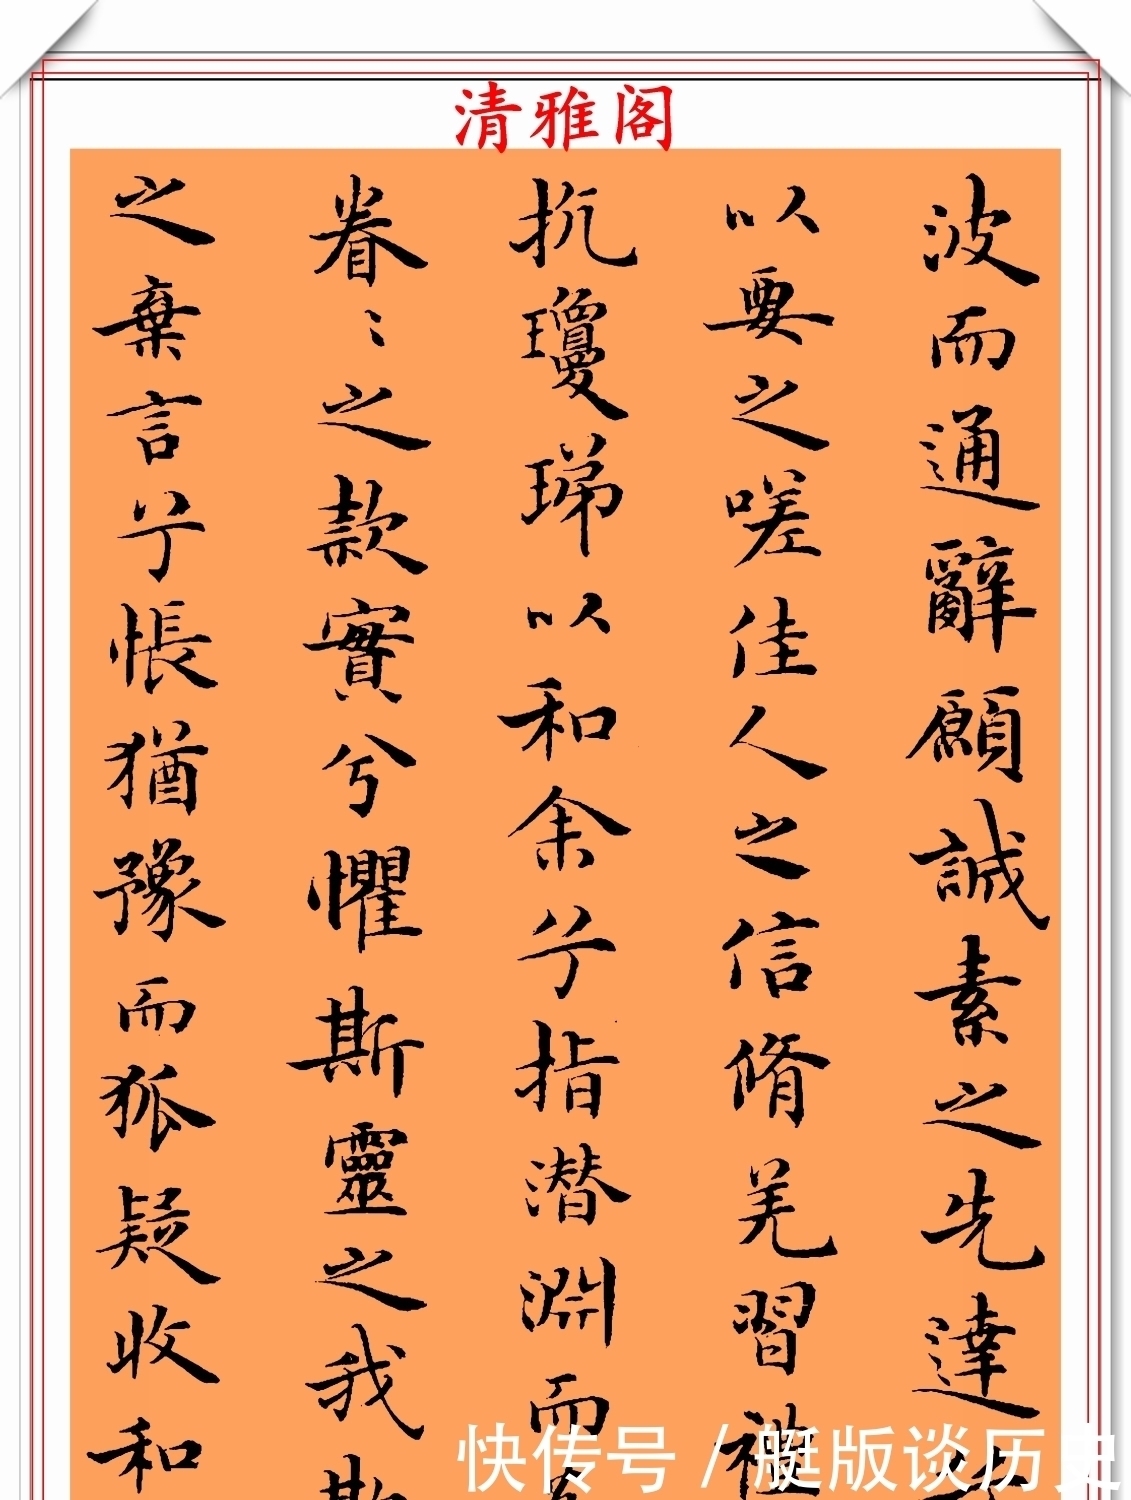 清雅阁
波而通辭願誠素之先達
以要之嗟佳人之信脩羌習禮
抗瓊珶以和余兮指潛淵而
眷〻之款實兮懼斯靈之我
之棄言兮悵猶豫而狐疑收和
快传号/艇版谈历史